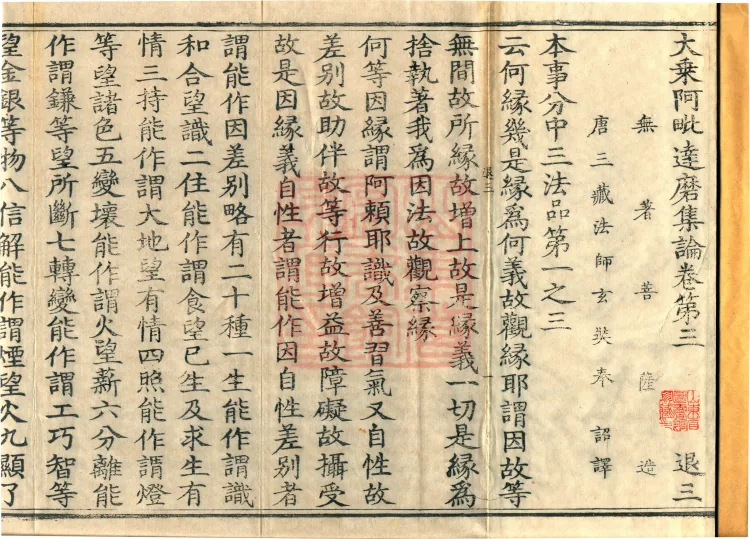 大乗阿毗達磨集論卷第三 退三
無著菩薩造
唐三藏法師玄奘奉 詔譯
本事分中三法品第一之三
云何緣幾是緣爲何義故觀緣耶謂因故等
無間故所緣故增上故是緣義一切是緣爲
退三 一
捨執著我爲因法故觀察緣
何等因緣謂阿賴耶識及善習氣又自性故
差別故助伴故等行故增益故障礙故攝受
故是因緣義自性者謂能作因自性差別者
謂能作因差別略有二十種一生能作謂識
和合望識二住能作謂食望已生及求生有
情三持能作謂大地望有情四照能作謂燈
等望諸色五變壞能作謂火望薪六分離能
作謂鎌等望所斷七轉變能作謂工巧智等
望金銀等物八信解能作謂煙望火九顯了